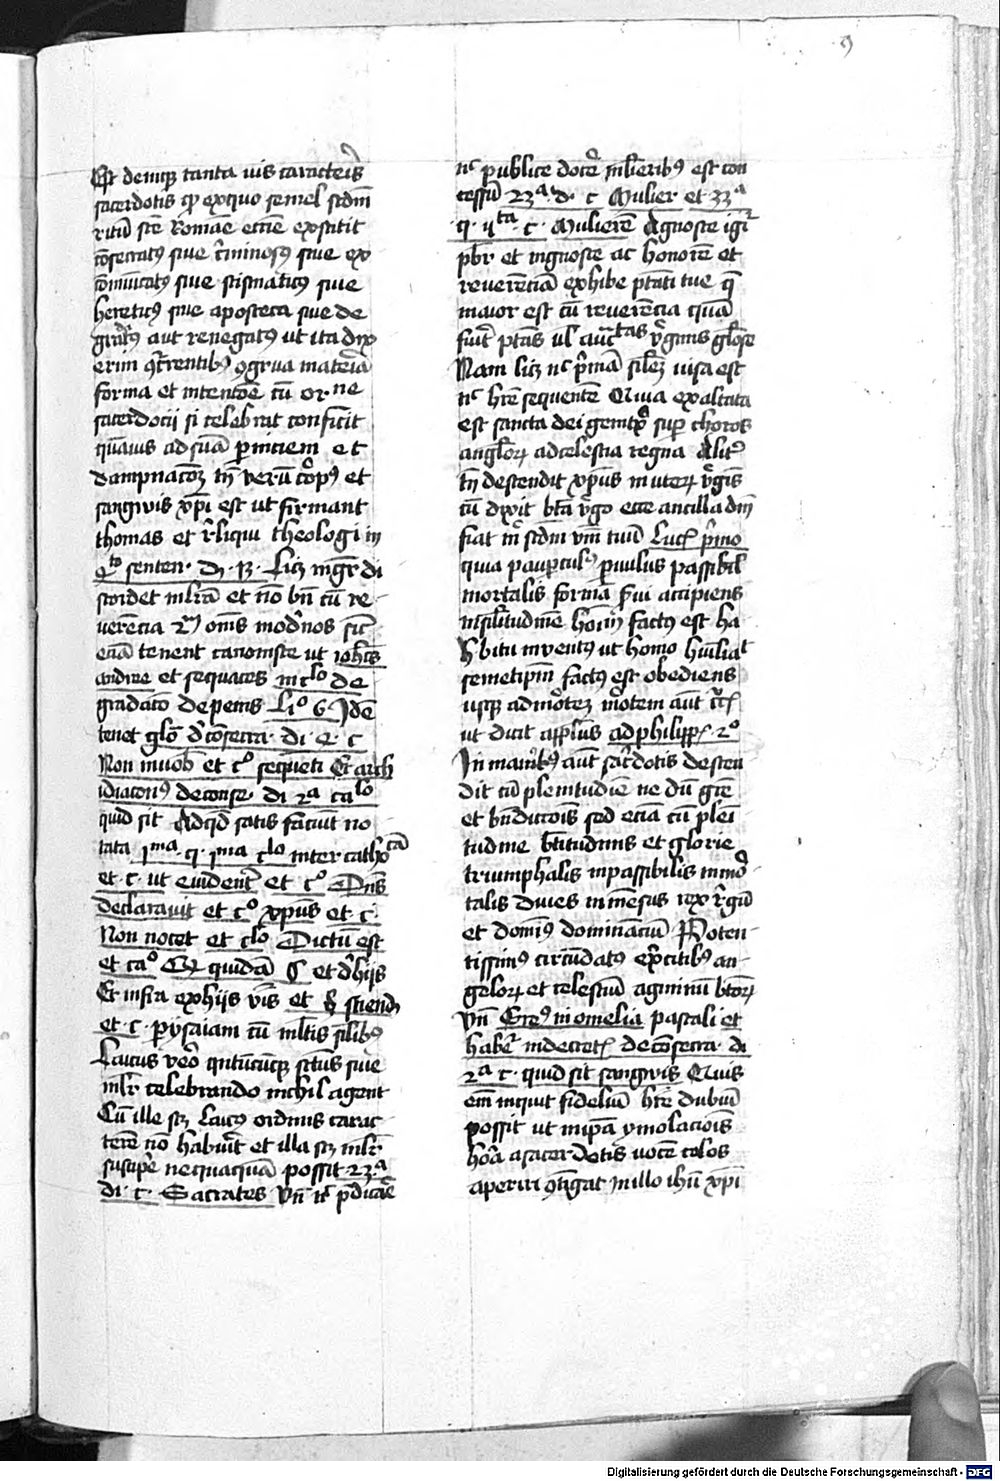 9
Est deniqȝ tanta uis caracteris
sacerdotis qp exquo semel scdm
ritu scē Romane eccīe exstitit
cōsecratꝰ siue criminosꝰ siue ex
cōmūicatꝰ siue scismaticꝰ siue
hereticꝰ siue apostata siue de
gradatꝰ aut renegatꝰ ut ita dix
erim ꝯcurrentibꝰ ꝯgrua materia
forma et intentōe cū or ne
sacerdocii si celebrat conficit
quāuis ad suā perniciem et
dampnacōeȝ tn̄ verū corpꝰ et
sangwis xp̄i est ut firmant
thomas et reliqui theologi in
4to senten. di. 13. Licȝ mgr̄ di
scordet mlrā et nō bn̄ cū re
uerencia omīs modnos sic
eciā tenent canoniste ut iohēs
andree et sequaces in clo de
gradatō de penis Lio 6 Idē
tenet glō de cōsecra. di. 2. c
Non inuob et co sequēti Et arch
idiaconꝰ de conse. di 2a ca lo
quid sit Ad qd satis faciūt no
tata jma. q. jma clo inter catho ca
et. c. ut euidenter et co Dn̄s
declarauit et co xp̄us et c.
Non nocet et clo Dictū est
et cao quidā et de hijs
Et infra ex hijs vers et sciend
et c. p ysaiam cū mltis silibꝰ
Laicus vero qntūcūqȝ scūs siue
mlr celebrando nichil agent
Cū ille scȝ laicꝰ ordinis carac
terē nō habuit et illa scȝ mlr
suscipe nequaquā possit 23a
di. c. Sacratas vn̄ nec pdicare
nc publice docere mlieribꝰ est con
cessū 23a. d. c Mulier et 33a
q. vta. c. Mulierē Agnosce igr
pbr et ingnosce ac honorē et
reuerēciā exhibe ptāti tue q̄
maior est cū reuerēcia quā
fuit ptās ul auctas v̓ginis gl̓ose
Nam licȝ nc p̓mā silēȝ uisa est
nc hr̄e sequentē Quia exaltata
est sancta dei genitx sup choros
anglorꝝ ad celestia regna Aliter
tn̄ descendit xp̄us in uterꝝ v̓gīs
cū dixit btā v̓go ecce ancilla dn̄i
fiat m̓ scdm vm̄ tuū Luc̄ p̓mo
quia paupculꝰ puulus passibil
mortalis formā s̓ui accipiens
in silitudine hoīm factꝰ est ha
bitu inuentꝰ ut homo hūiliat
semetipm̄ factꝰ est obediens
usqȝ ad mortēȝ mortem aut cruc̄
ut dicit applūs ad philipp̄ 2o
In manibꝰ aut sac̓dotis descen
dit cū plenitudīe ne dū gr̄e
et bn̄dictōis sed eciā cū pleī
tudine btitudinis et glorie
triumphalis inpassibilis inmor
talis diues inmēsus rex regū
et domīꝰ dominaciū Poten
tissimꝰ circūdatꝰ exercitibꝰ an
gelorꝝ et celestiū agminū btorꝝ
vn̄ Gregꝰ in omelia pascali et
habet in decretꝭ de cōsecra. di
2a c. quid sit sangwis Quis
em̄ inquit fideliū hr̄e dubiū
possit ut in ip̄a ymolaciois
hora a sacerdotis uoce celos
aperiri ꝯtīgat in illo ih̄u xp̄i
Digitalisierung gefördert durch die Deutsche Forschungsgemeinschaft - DFG